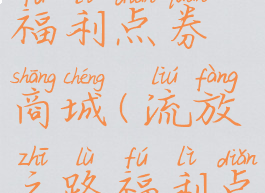 福利点券
shāng chéng liú fàng
商城(流放
zhī lù fú lì diǎn
之路福利点